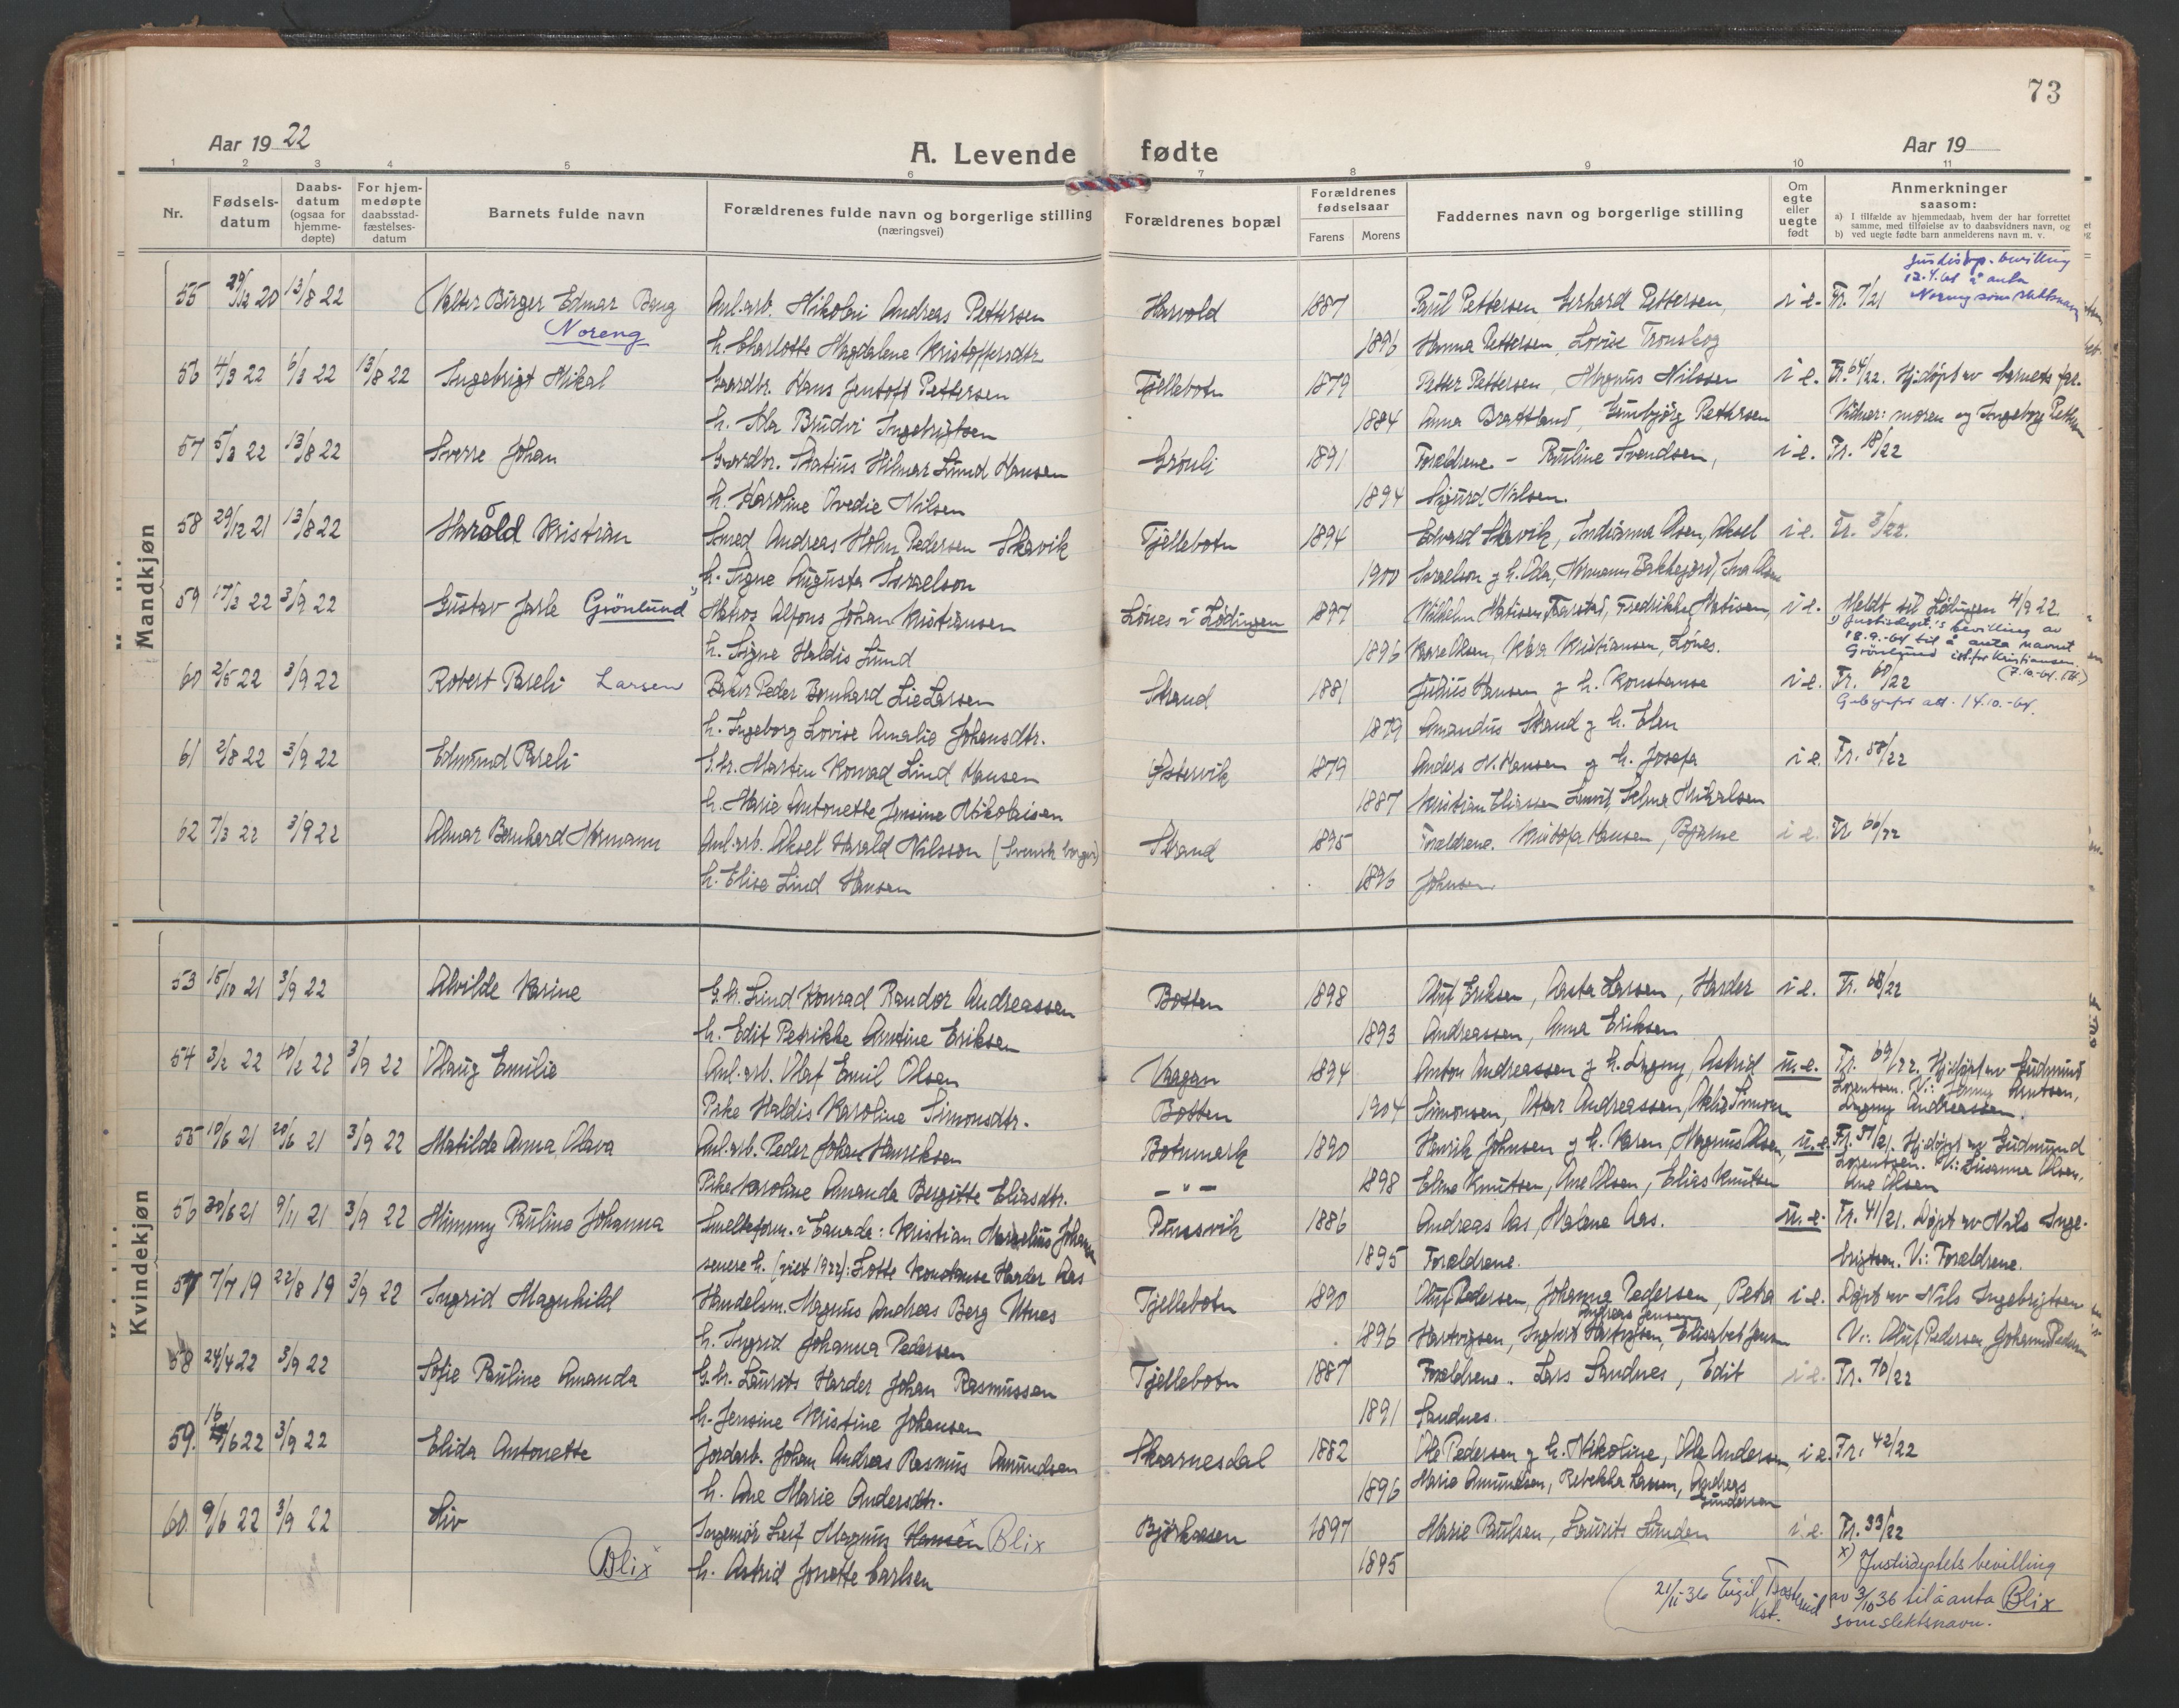 73
Aar 19 22
A. Levende fødte
Aar 19
1 2 3 4 5 6 7 8 9 10 11
Nr.
Fødsels-
datum
Daabs-
datum
(ogsaa for
hjemme-
døpte)
For hjem-
medøpte
daabsstad-
fæstelses-
datum
Barnets fulde navn
Forældrenes fulde navn og borgerlige stilling
(næringsvei)
Forældrenes bopæl
Forældrenes
fødselsaar
Farens Morens
Faddernes navn og borgerlige stilling
Om
egte
eller
uegte
født
Anmerkninger
saasom:
a) I tilfælde av hjemmedaab, hvem der har forrettet
samme, med tilføielse av to daabsvidners navn, og
b) ved uegte fødte barn anmelderens navn m. v.
Mandkjøn
55 29/12 20 13/8 22 Valter Birger Edmar Baug Anl.arb. Nikolai Andreas Pettersen Harvold 1887 Paul Pettersen, Gerhard Pettersen, i e. Fr. 7/21
Justisdep. bevilling
12.4.61 å anta
Noreng som slektsnavn
Noreng h. Charlotte Magdalene Kristoffersdtr. 1896 Hanna Pettersen, Lovise Tronskog
56 4/3 22 6/3 22 13/8 22 Ingebrigt Mikal Gaardbr. Hans Jentoft Pettersen Tjellebotn 1879 Petter Pettersen, Magnus Nilssen i e. Fr. 64/22. Hj.døpt av barnets far.
h. Ala Brudvi Ingebrigtsen 1884 Anna Brattland, Gunbjørg Pettersen Vidner: moren og Ingeborg Petters
57 5/3 22 13/8 22 Sverre Johan Gaardbr. Statius Hilmar Lund Hansen Grønli 1891 Forældrene - Pauline Svendsen, i e. Fr. 18/22
h. Karoline Ovedie Nilsen 1894 Sigurd Nilsen.
58 29/12 21 13/8 22 Harald Kristian Smed Andreas Holm Pedersen Skavik Tjellebotn 1894 Edvard Skavik, Indianna Olsen, Aksel i e. Fr. 3/22.
h. Signe Augusta Israelson 1900 Israelson og h. Oda, Normann Bakkejord, Ina Olsen
59 17/3 22 3/9 22 Gustav Jarle Grönlund Matros Alfons Johan Kristiansen Lónes i Lødingen 1897 Vilhelm Matisen Farstad, Fredrikke Matisen, i e. Meldt til Lødingen 4/9 22
1) Justisdept.'s bevilling av
18.9.-64 til å anta navnet
Grönlund ist.for Kristiansen.
h. Signe Haldis Lund 1896 Kaare Olsen, Kåra Kristiansen, Lónes.
60 2/5 22 3/9 22 Robert Pareli Larsen Baker Peder Bernhard Lie Larsen Strand 1881 Julius Hansen og h. Konstanse i e. Fr. 60/22
h. Ingeborg Lovise Amalie Johansdtr. 1879 Amandus Strand og h. Elen
61 2/8 22 3/9 22 Edmund Pareli G.br. Martin Konrad Lind Hansen Østervik 1879 Anders N. Hansen og h. Josefa i e. Fr. 58/22
h. Marie Antonette Jensine Nikolaisen 1887 Kristian Eliassen Lamvik, Selma Mikalsen
62 7/3 22 3/9 22 Almar Bernhard Normann Anl.arb. Aksel Harald Nilsson (Svensk borger) Strand 1895 Forældrene. Kristofa Hansen, Bjarne i e. Fr. 66/22
h. Elise Lind Hansen 1896 Johnsen.
Kvindekjøn
53 15/10 21 3/9 22 Alvilde Karine G.br. Lind Konrad Randor Andreassen Botten 1898 Oluf Eriksen, Aasta Larsen, Harder i e. Fr. 68/22
h. Edit Petrikke Antine Eriksen 1893 Andreassen, Anna Eriksen
54 3/2 22 10/2 22 3/9 22 Olaug Emilie Anl.arb. Olaf Emil Olsen Vaagan 1894 Anton Andreassen og h. Dagny, Astrid u.e. Fr. 69/22. Hj.døpt av Gudmund
Lorentsen. V: Jenny Arntsen,
Dagny Andreassen.
Pike Haldis Karoline Simonsdtr. Botten 1904 Simonsen, Ottar Andreassen, Oklie Simonsen
55 10/6 21 20/6 21 3/9 22 Matilde Anna Olava Anl.arb. Peder Johan Henriksen Botnmark 1890 Henrik Johnsen og h. Karen, Magnus Olsen, u.e. Fr. 37/21. Hj.døpt av Gudmund
Lorentsen. V: Susanna Olsen,
Ane Olsen
Pike Karoline Amanda Bergitte Eliasdtr. — " — 1898 Elma Knutsen, Ane Olsen, Elias Knutsen
56 30/6 21 9/11 21 3/9 22 Mimmy Pauline Johanna Smelteform. i Canada: Kristian Marselius Johansen Punsvik 1886 Andreas Aas, Malene Aas. u.e. Fr. 41/21. Døpt av Nils Inge-
senere h. (viet 1922): Lotte Konstanse Harder Aas 1895 Forældrene. brigtsen. V: Forældrene.
57 7/7 19 22/8 19 3/9 22 Ingrid Magnhild Handelsm. Magnus Andreas Berg Utnes Tjellebotn 1890 Oluf Pedersen, Johanna Pedersen, Petra i e. Døpt av Nils Ingebrigtsen
Andreas Jensen
h. Ingrid Johanna Pedersen 1896 Hartvigsen, Ingbert Hartvigsen, Elisabet Jensen V: Oluf Pedersen, Johanna Pedersen
58 24/4 22 3/9 22 Sofie Pauline Amanda G.br. Laurits Harder Johan Rasmussen Tjellebotn 1887 Forældrene. Lars Sandnes, Edit i e. Fr. 70/22
h. Jensine Kristine Johansen 1891 Sandnes.
59. 16/6 22 3/9 22 Elida Antonette Jordarb. Johan Andreas Rasmus Amundsen Skaarnesdal 1882 Ole Pedersen og h. Nikoline, Ole Andersen, i e. Fr. 42/22
h. Ane Marie Andersdtr. 1896 Marie Amundsen, Rebekka Larsen, Andreas
Gundersen
60 9/6 22 3/9 22 Siv Ingeniør Leif Magnus Hansen x Blix Bjørkaasen 1897 Marie Paulsen, Laurits Lunden i e. Fr. 33/22
Blix x h. Astrid Jonette Carlsen 1895
x) Justisdeptets bevilling
av 3/10 36 til å anta Blix
som slektsnavn.
21/11-36 Eigil
Kst.